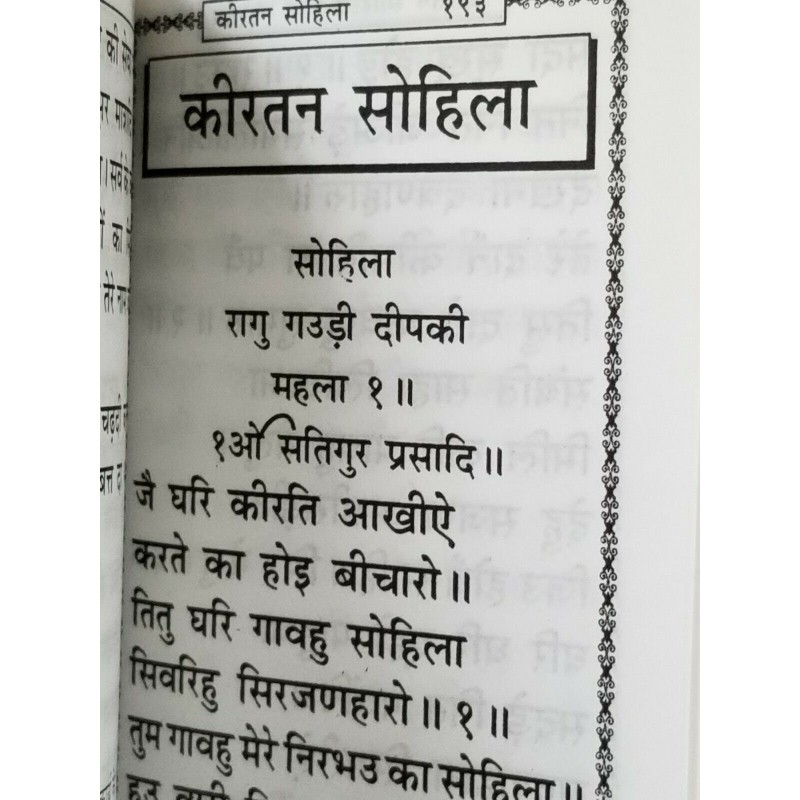 कीरतन सोहिला १९३
कीरतन सोहिला
सोहिला
रागु गउड़ी दीपकी
महला १॥
१ओ सतिगुर प्रसादि॥
जै घरि कीरति आखीऐ
करते का होइ बीचारो॥
तितु घरि गावहु सोहिला
सिवरिहु सिरजणहारो॥ १॥
तुम गावहु मेरे निरभउ का सोहिला॥